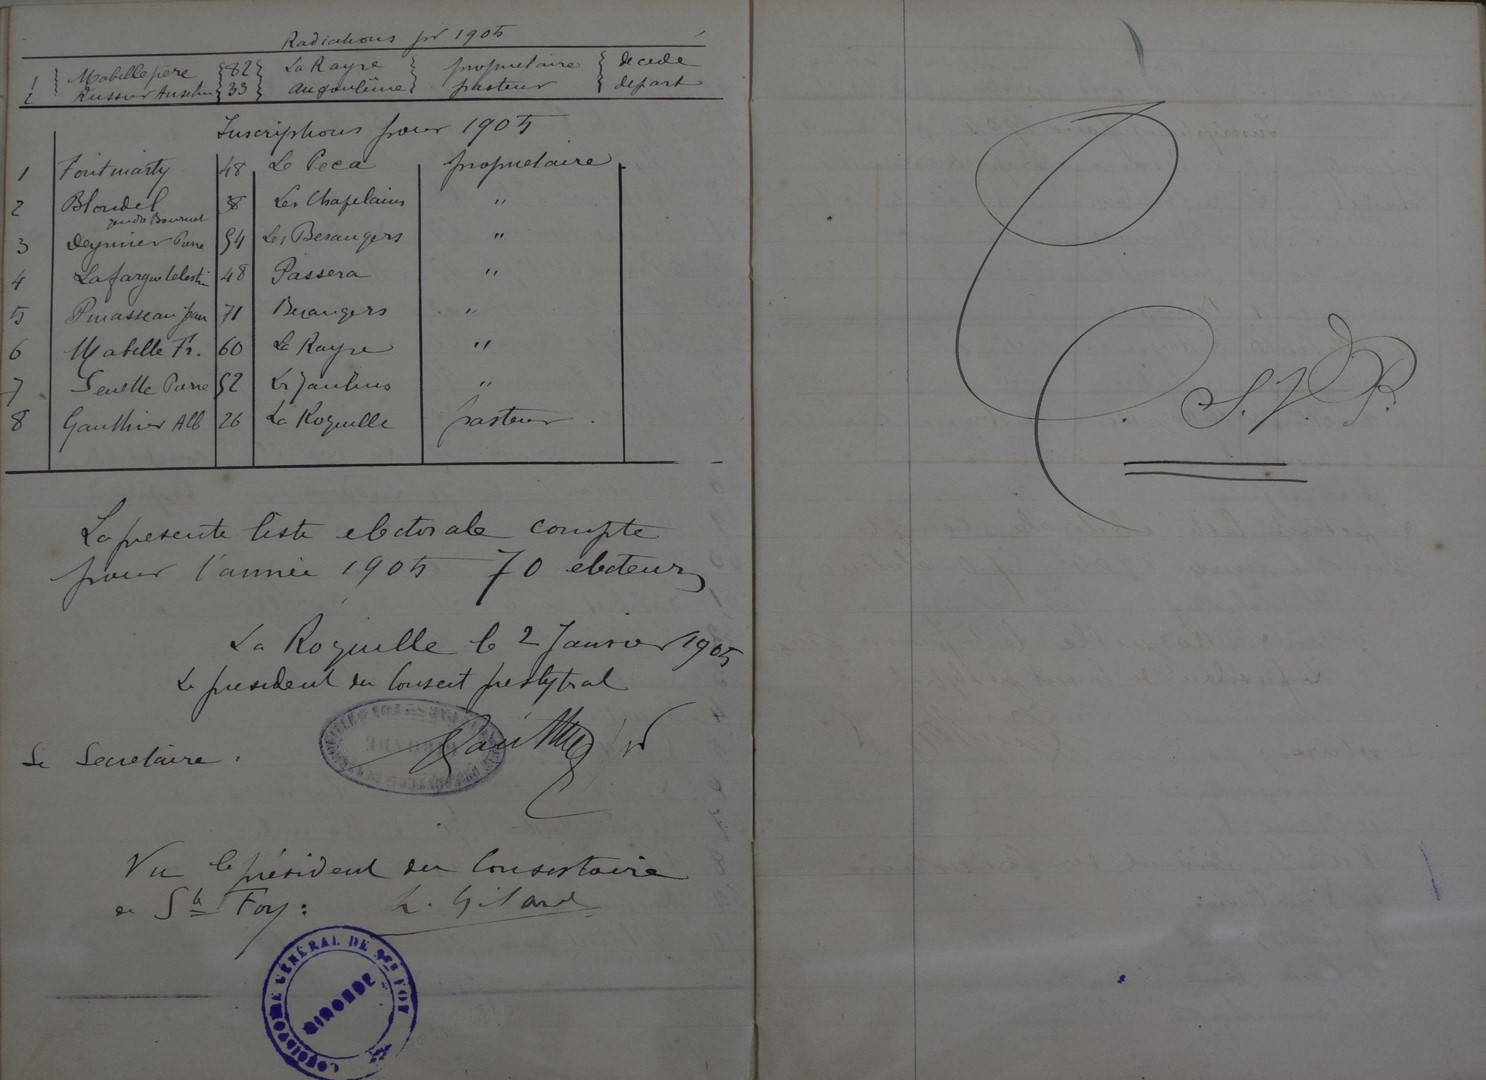 Radiations pr 1905
1 Mabille père 82 La Rayre propriétaire décédé
2 Russier Anselm 33 Angoulême pasteur départ
Inscriptions pour 1905
1 Fontmarty 48 Le Peca propriétaire
2 Blondel 38 Les Chapelains "
gendre Bournel
3 Deymier Pierre 54 Les Berangers "
4 Lafargue Celestin 48 Passera "
5 Pinasseau Jean 71 Berangers "
6 Mabille Fr. 60 La Rayre "
7 Pierre 52 "
8 Gauthier Alb 26 La Roquille pasteur.
La présente liste électorale compte
pour l'année 1905 70 électeurs
La Roquille le 2 Janvier 1905
Le président du Conseil presbytéral
Gauthier
Le Secrétaire.
Vu le président du Consistoire
de Ste Foy: L. Gilard
CONSISTOIRE GÉNÉRAL DE STE FOY
GIRONDE
T. S. V. P.